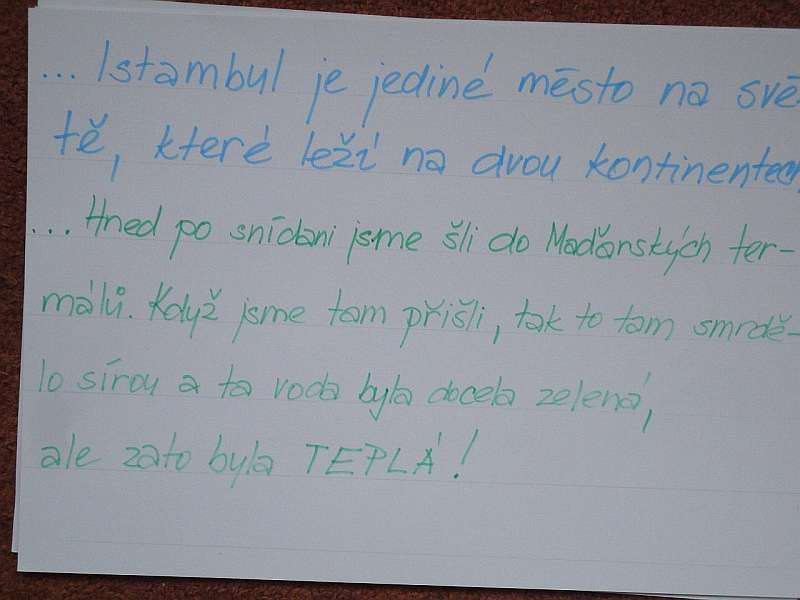 ... Istambul je jediné město na svě-
tě, které leží na dvou kontinentech
... Hned po snídani jsme šli do Maďarských ter-
málů. Když jsme tam přišli, tak to tam smrdě-
lo sírou a ta voda byla docela zelená,
ale zato byla TEPLÁ!